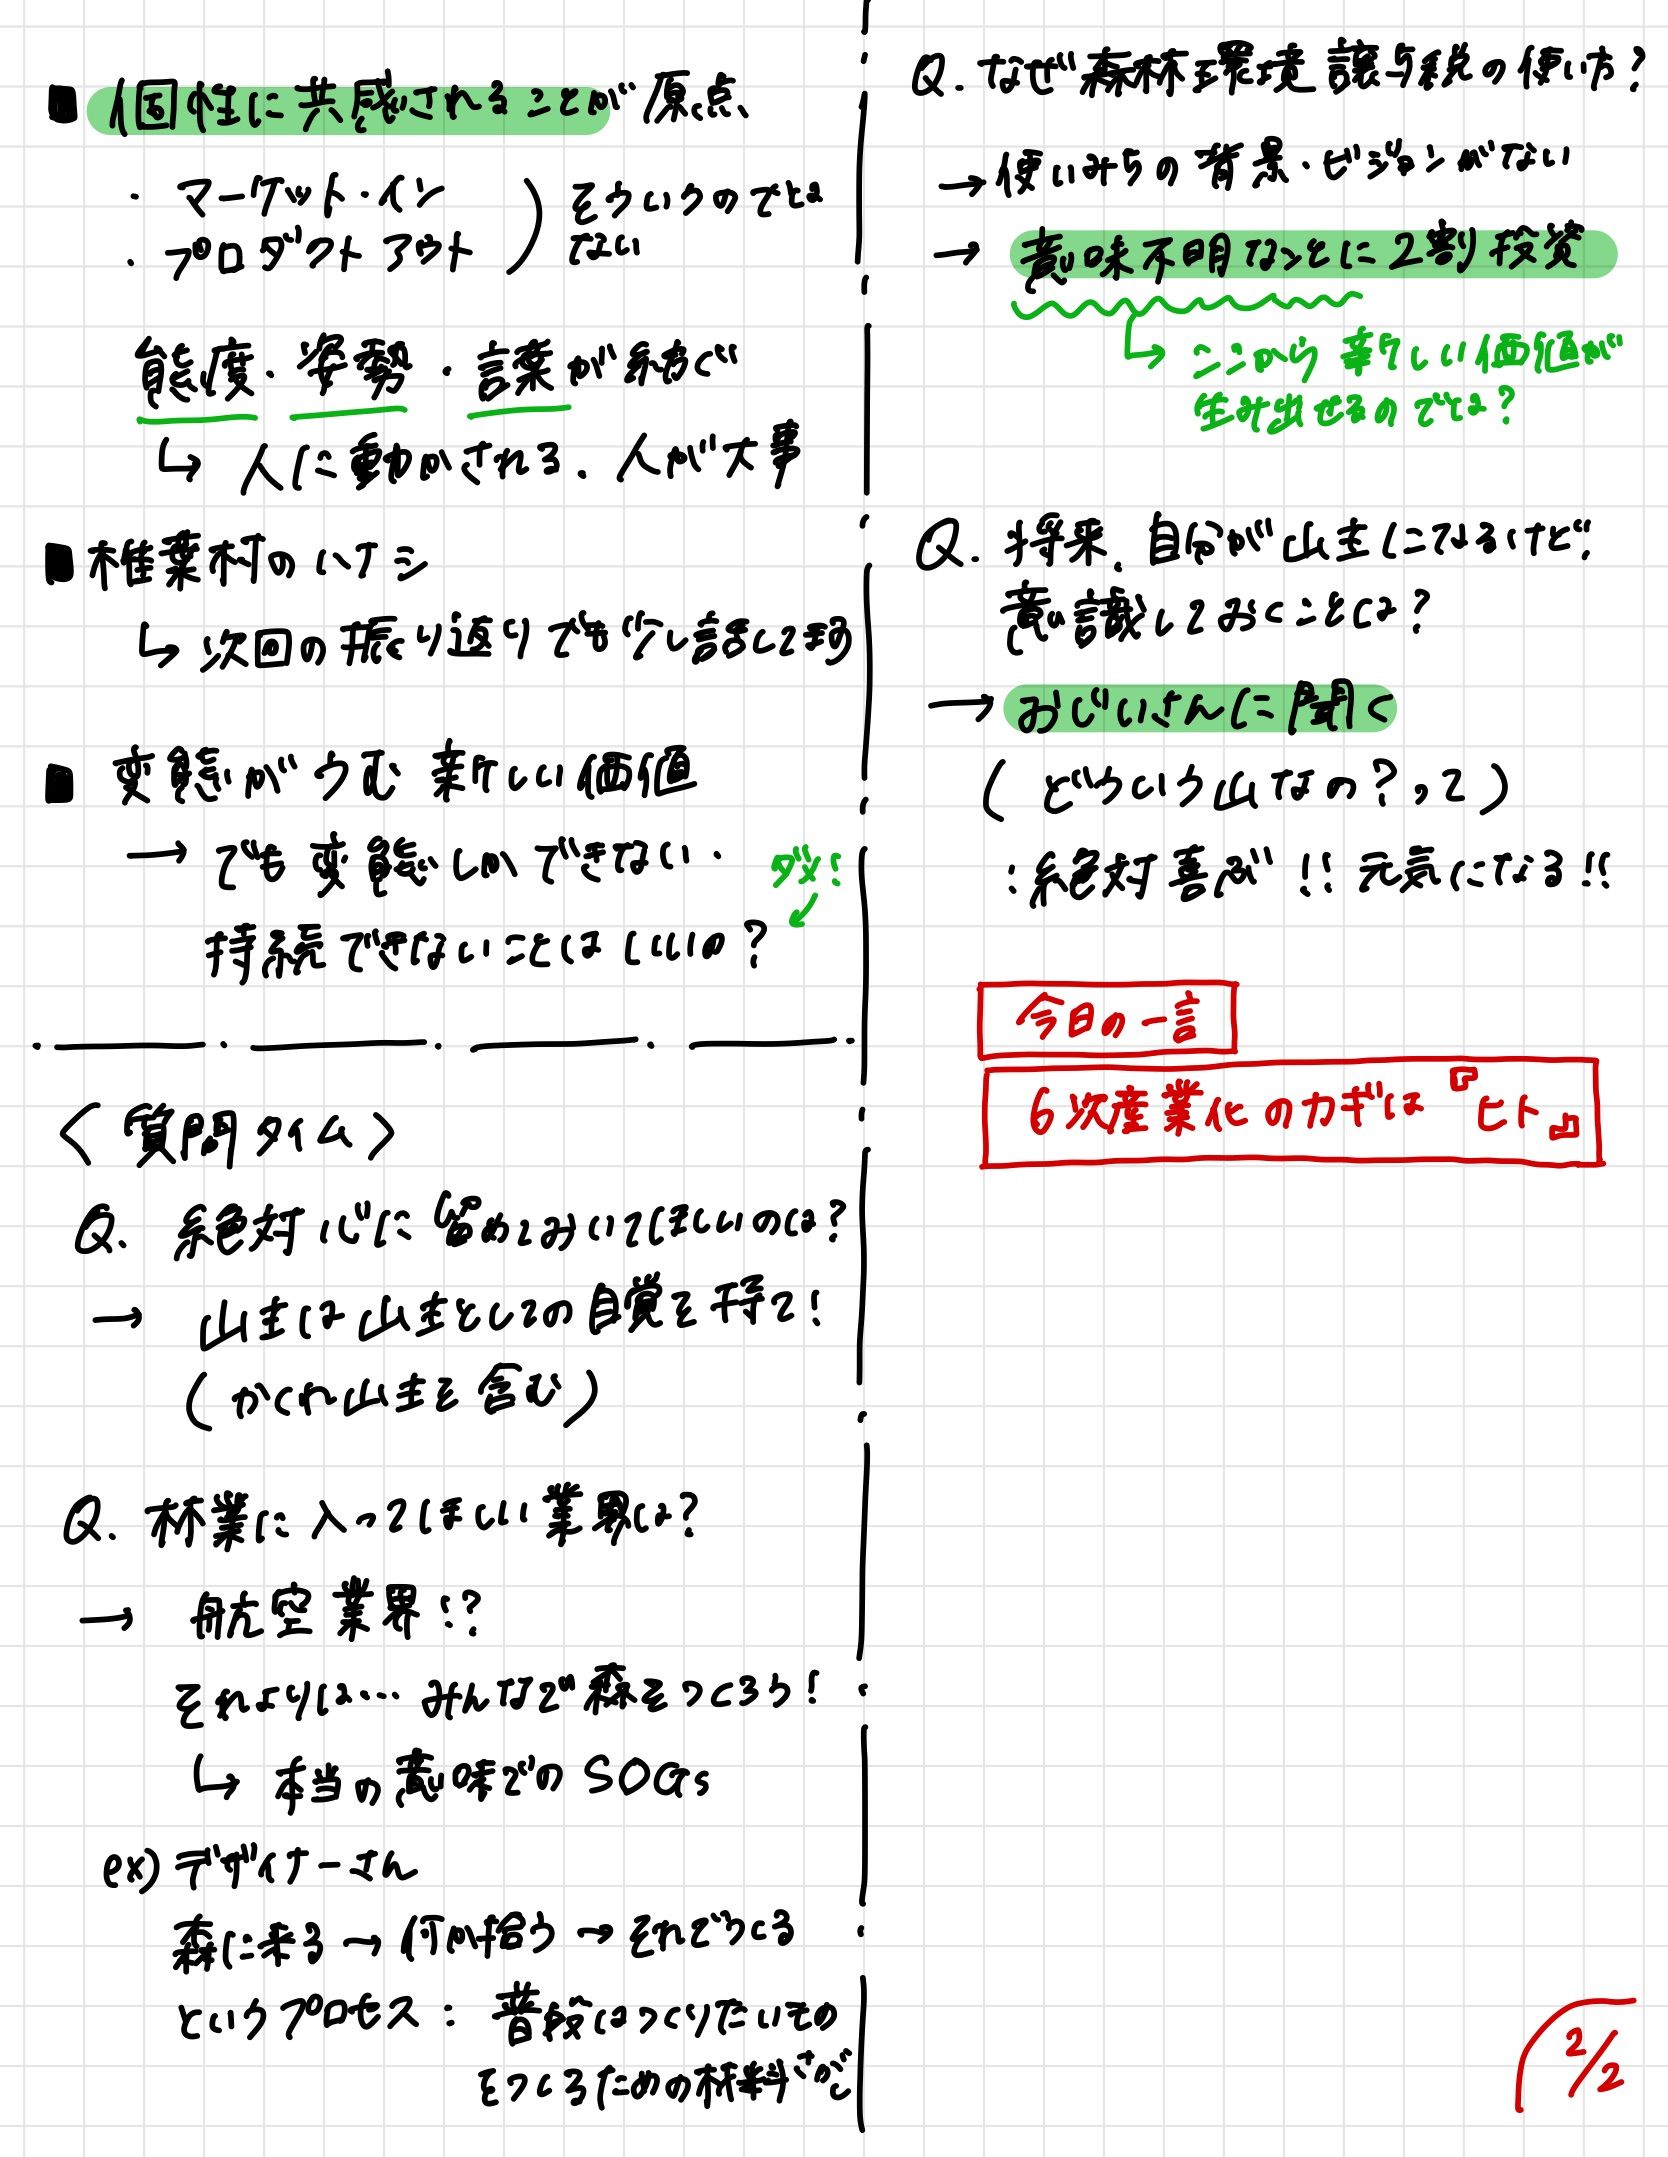 ■ 個性に共感されることが原点、
・ マーケット・イン
・ プロダクトアウト
) そういうのではない
態度・姿勢・言葉が紡ぐ
↳ 人に動かされる、人が大事
■ 椎葉村のハナシ
↳ 次回の振り返りでも少し話してます
■ 変態がうむ新しい価値
→ でも変態しかできない・
ダメ!
↙
持続できないことはいいの?
<質問タイム>
Q. 絶対心に留めてみいてほしいのは?
→ 山主は山主としての自覚を持て!
(かくれ山主を含む)
Q. 林業に入ってほしい業界は?
→ 航空業界!?
それよりは… みんなで森をつくろう!
↳ 本当の意味でのSDGs
ex) デザイナーさん
森に来る→何か拾う→それでつくる
というプロセス: 普段はつくりたいもの
をつくるための材料さがし
Q. なぜ森林環境譲与税の使い方?
→ 使いみちの背景・ビジョンがない
→ 意味不明なことに2割投資
↳ ここから新しい価値が
生み出せるのでは?
Q. 将来、自分が山主になるけど、
意識しておくことは?
→ おじいさんに聞く
(どういう山なの?って)
:絶対喜ぶ!! 元気になる!!
今日の一言
6次産業化のカギは『ヒト』
2/2